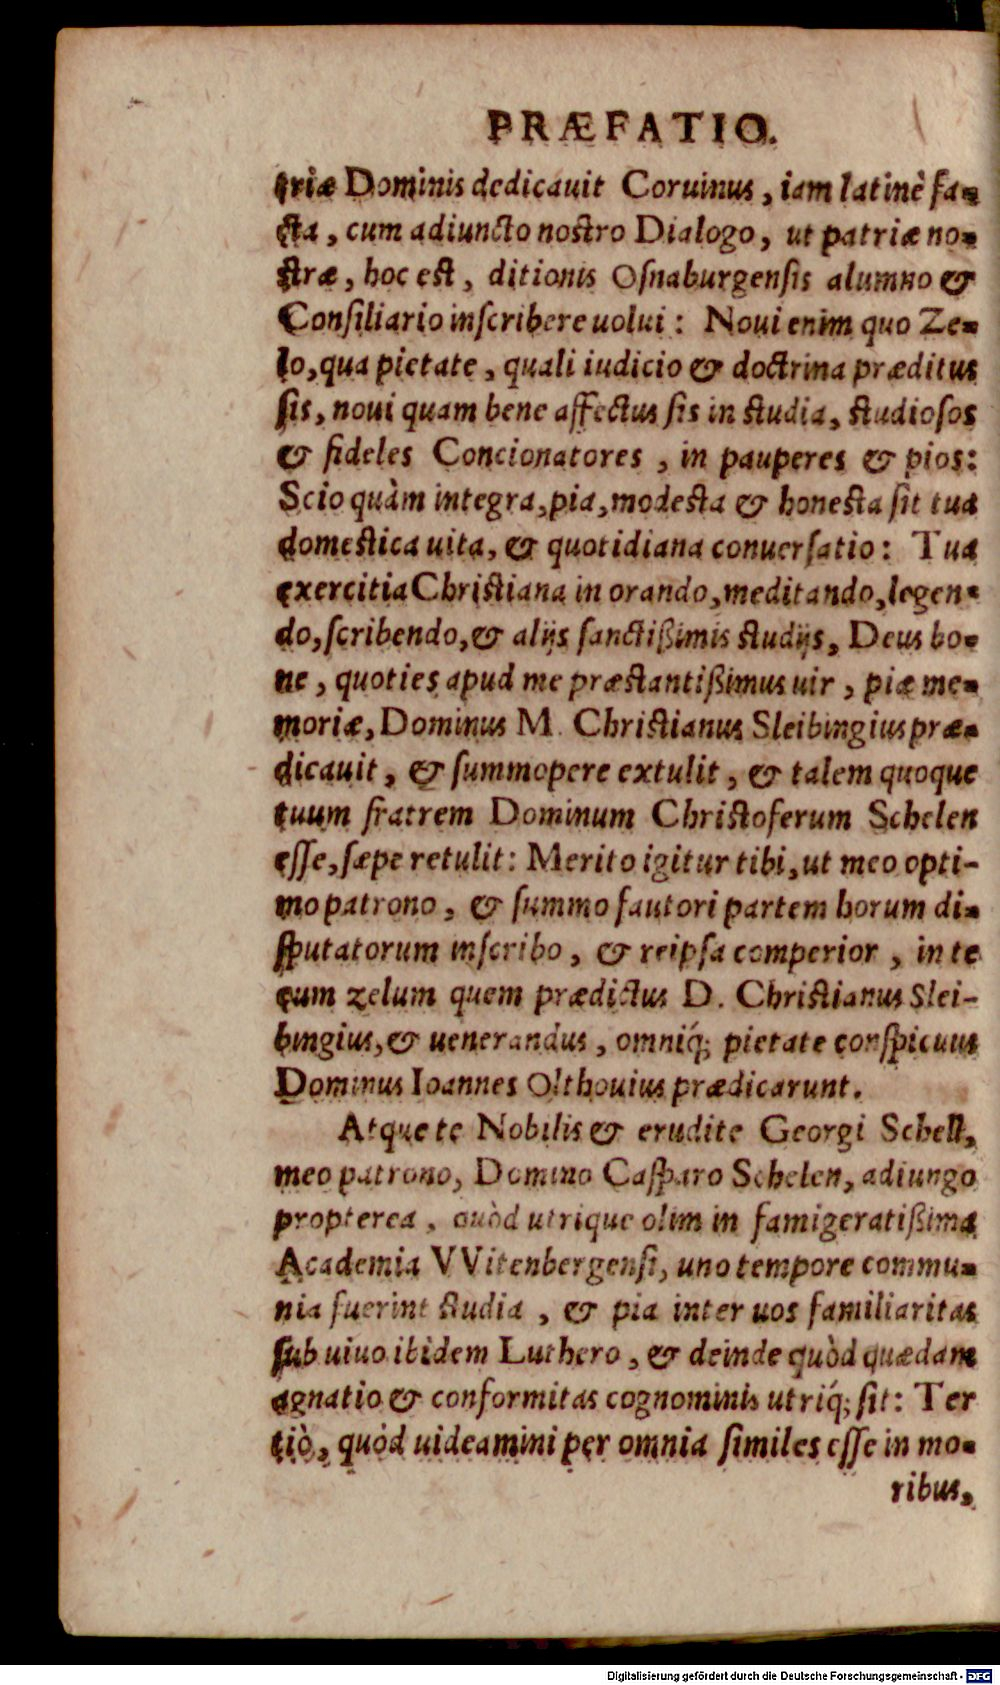 PRÆFATIO.
triæ Dominis dedicauit Coruinus, iam latinè fa-
cta, cum adiuncto nostro Dialogo, ut patriæ no-
stræ, hoc est, ditionis Osnaburgensis alumno &
Consiliario inscribere uolui: Noui enim quo Ze-
lo, qua pietate, quali iudicio & doctrina præditus
sis, noui quam bene affectus sis in studia, studiosos
& fideles Concionatores, in pauperes & pios:
Scio quàm integra, pia, modesta & honesta sit tua
domestica uita, & quotidiana conuersatio: Tua
exercitia Christiana in orando, meditando, legen-
do, scribendo, & alijs sanctißimis studijs, Deus bo-
ne, quoties apud me præstantißimus uir, piæ me-
moriæ, Dominus M. Christianus Sleibingius præ-
dicauit, & summopere extulit, & talem quoque
tuum fratrem Dominum Christoferum Schelen
esse, sæpe retulit: Merito igitur tibi, ut meo opti-
mo patrono, & summo fautori partem horum di-
sputatorum inscribo, & reipsa comperior, in te
eum zelum quem prædictus D. Christianus Slei-
bingius, & uenerandus, omniq́; pietate conspicuus
Dominus Ioannes Olthouius prædicarunt.
Atque te Nobilis & erudite Georgi Schell,
meo patrono, Domino Casparo Schelen, adiungo
propterea, quòd utrique olim in famigeratißima
Academia VVitenbergensi, uno tempore commu-
nia fuerint studia, & pia inter uos familiaritas
sub uiuo ibidem Luthero, & deinde quòd quædam
agnatio & conformitas cognominis utriq́; sit: Ter
tiò, quòd uideamini per omnia similes esse in mo-
ribus,
Digitalisierung gefördert durch die Deutsche Forschungsgemeinschaft - DFG